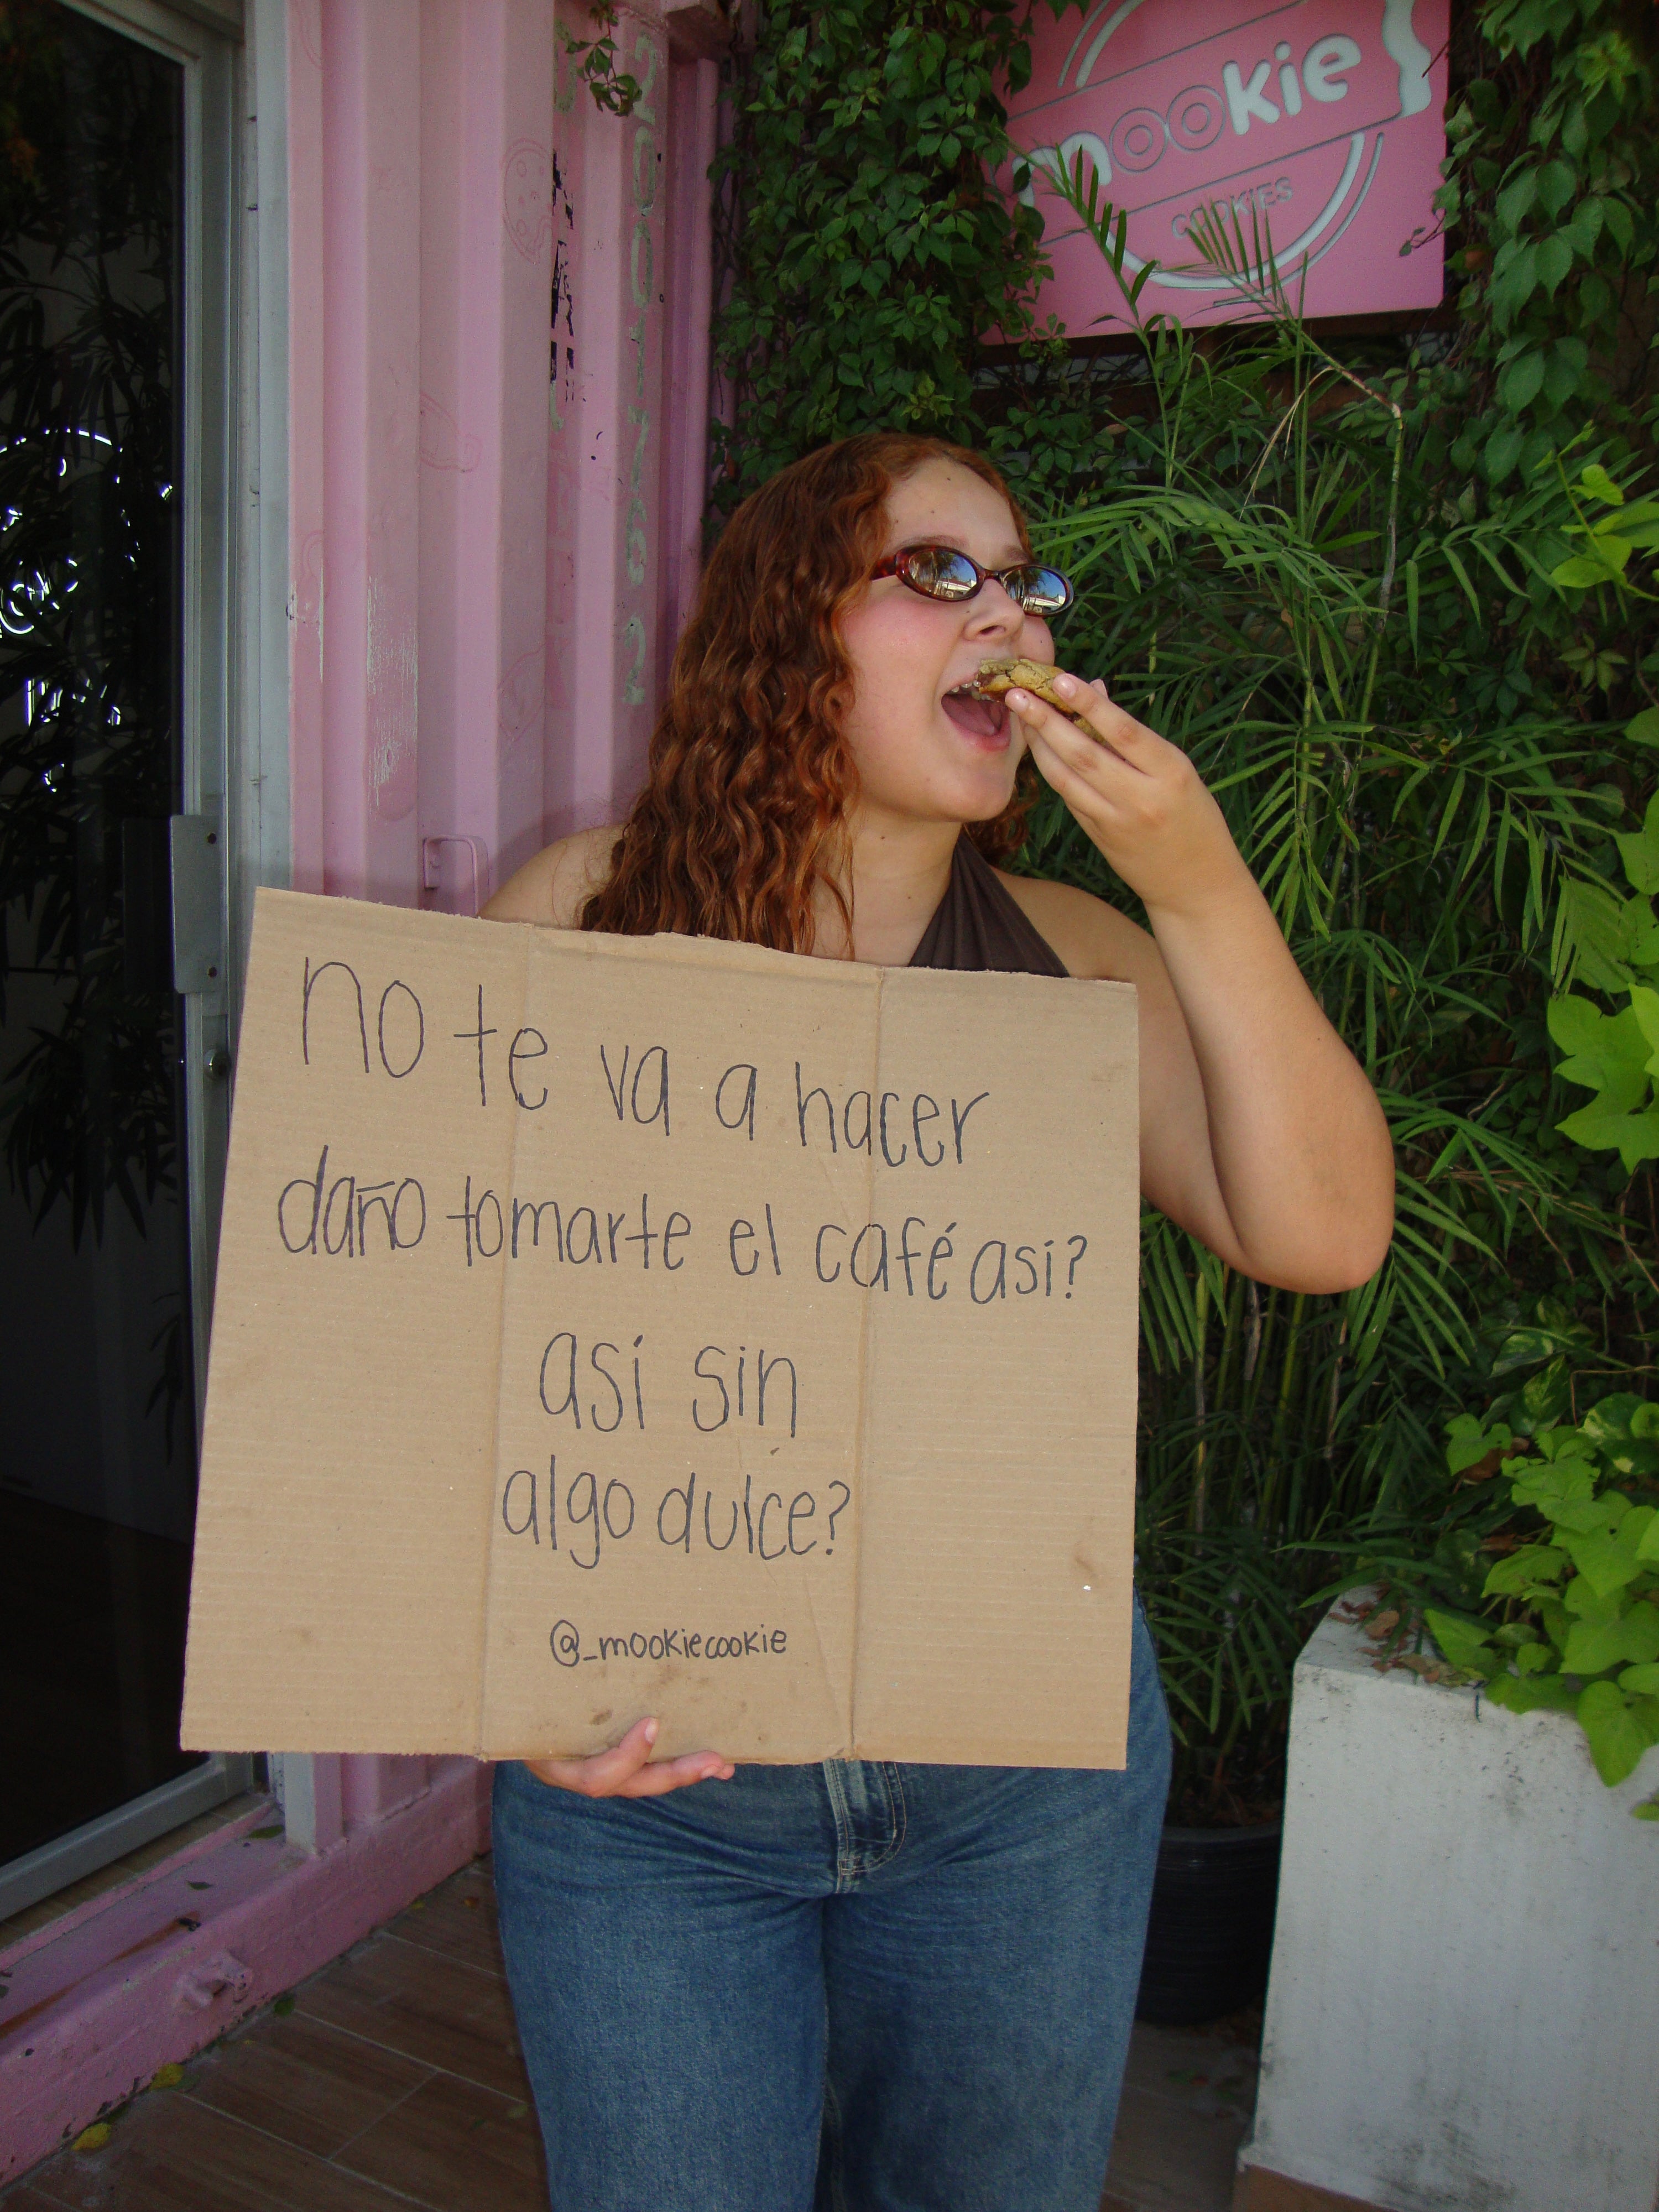 mookie
COOKIES
no te va a hacer
daño tomarte el café asi?
así sin
algo dulce?
@_mookiecookie